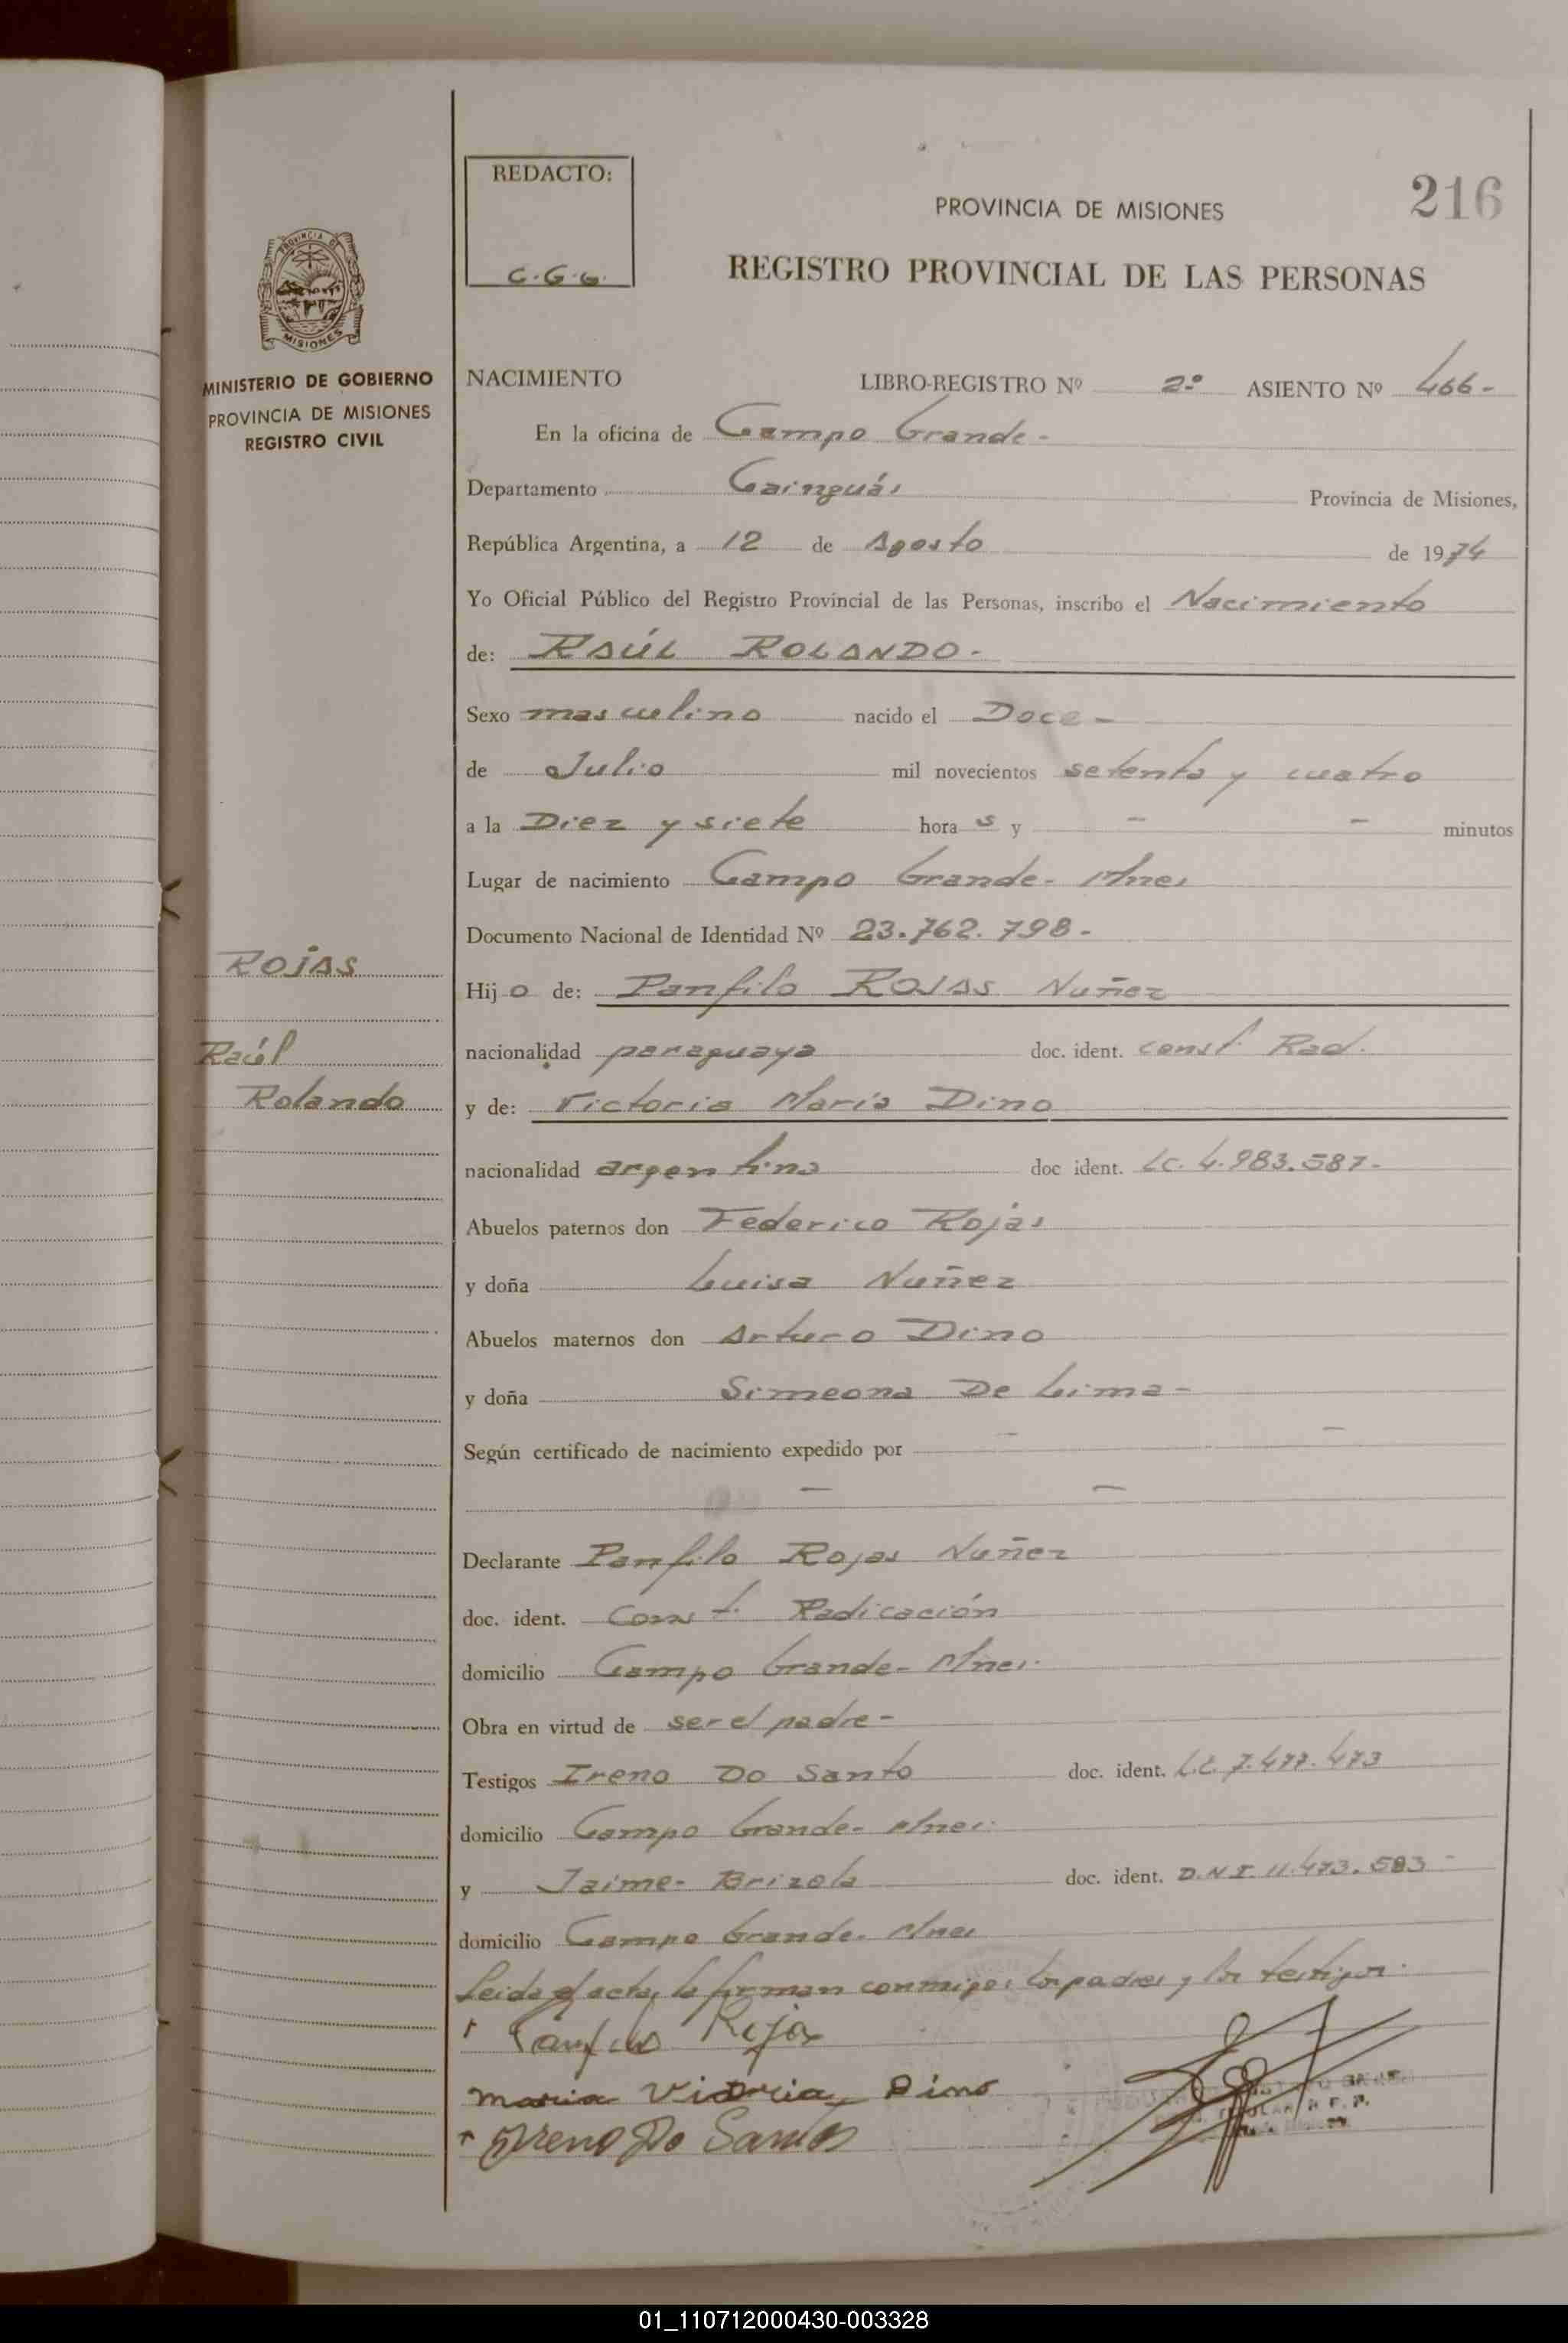 REDACTO:
C.G.G.
PROVINCIA DE MISIONES
216
REGISTRO PROVINCIAL DE LAS PERSONAS
PROVINCIA DE
MISIONES
MINISTERIO DE GOBIERNO
PROVINCIA DE MISIONES
REGISTRO CIVIL
NACIMIENTO LIBRO-REGISTRO Nº 2º ASIENTO Nº 466-
En la oficina de Campo Grande-
Departamento Cainguás Provincia de Misiones,
República Argentina, a 12 de Agosto de 1974
Yo Oficial Público del Registro Provincial de las Personas, inscribo el Nacimiento
de: RAÚL ROLANDO-
Sexo masculino nacido el Doce-
de Julio mil novecientos setenta y cuatro
a la Diez y siete hora s y - - minutos
Lugar de nacimiento Campo Grande- Mnes
Documento Nacional de Identidad Nº 23.762.798-
Rojas
Hij o de: Panfilo ROJAS Nuñez
Raúl
nacionalidad paraguaya doc. ident. const. Rad.
Rolando
y de: Victoria María Dino
nacionalidad argentina doc ident. LC. 4.983.587-
Abuelos paternos don Federico Rojas
y doña Luisa Nuñez
Abuelos maternos don Arturo Dino
y doña Simeona De Lima-
Según certificado de nacimiento expedido por - -
- -
Declarante Panfilo Rojas Nuñez
doc. ident. Const. Radicación
domicilio Campo Grande- Mnes.
Obra en virtud de ser el padre-
Testigos Ireno Do Santo doc. ident. L.E. 7.477.473
domicilio Campo Grande- Mnes.
y Jaime- Brizola doc. ident. D.N.I. 11.473.583-
domicilio Campo Grande- Mnes
Leida el acta, la firman conmigo, los padres y los testigos.
Panfilo Rojas
maria Victoria Dino
Ireno Do Santos
01_110712000430-003328